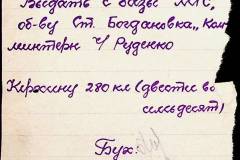 Выдать с базы МТС,
об-ву Ст. Богдановка „Ком
минтерн ч/ Руденко
Керосину 280 кл (двести во
семьдесят)
Бух: